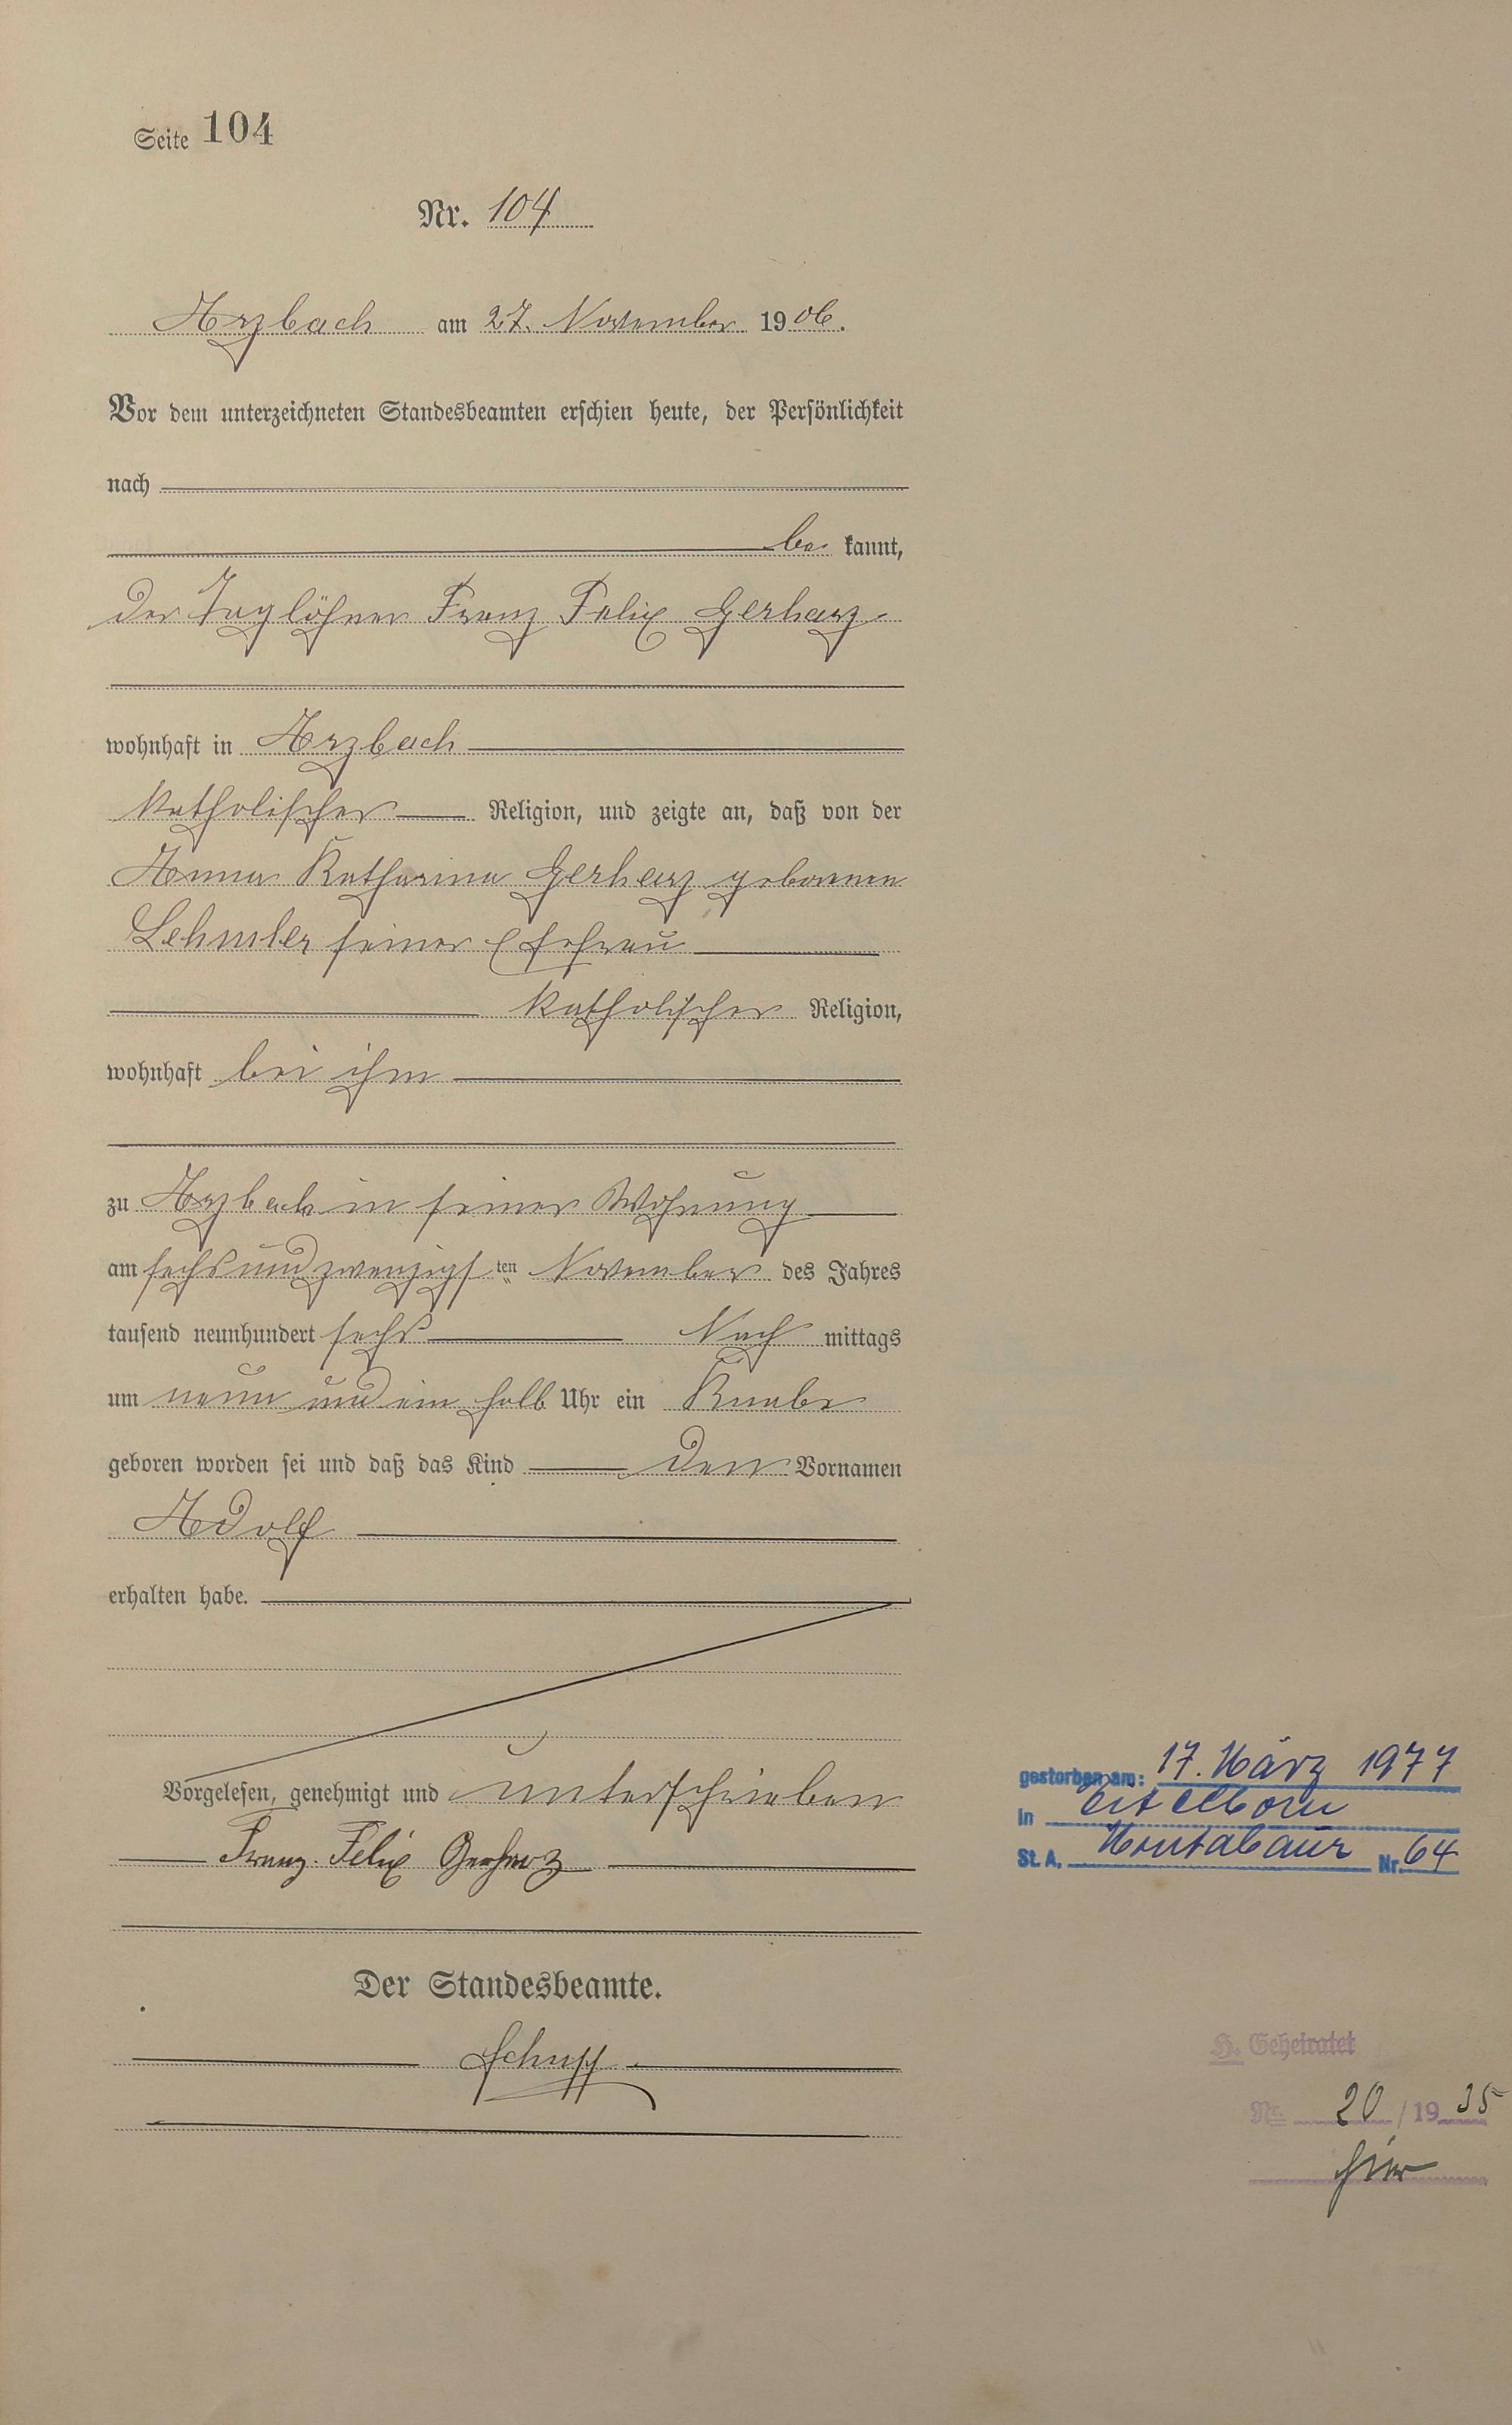 Seite 104
Nr. 104
Arzbach am 27. November 1906.
Vor dem unterzeichneten Standesbeamten erschien heute, der Persönlichkeit
nach
be kannt,
der Taglöhner Franz Felix Gerharz
wohnhaft in Arzbach
katholischer Religion, und zeigte an, daß von der
Anna Katharina Gerharz geborenen
Lehmler seiner Ehefrau
katholischer Religion,
wohnhaft bei ihm
zu Arzbach in seiner Wohnung
am sechs und zwanzigsten November des Jahres
tausend neunhundert sechs Nach mittags
um neun und ein halb Uhr ein Knabe
geboren worden sei und daß das Kind den Vornamen
Adolf
erhalten habe.
Vorgelesen, genehmigt und unterschrieben
Franz Felix Gerharz
Der Standesbeamte.
Schupp
gestorben am: 17. März 1977
in Eitelborn
St. A. Montabaur Nr. 64
H. Geheiratet
Nr. 20 / 19 35
hier